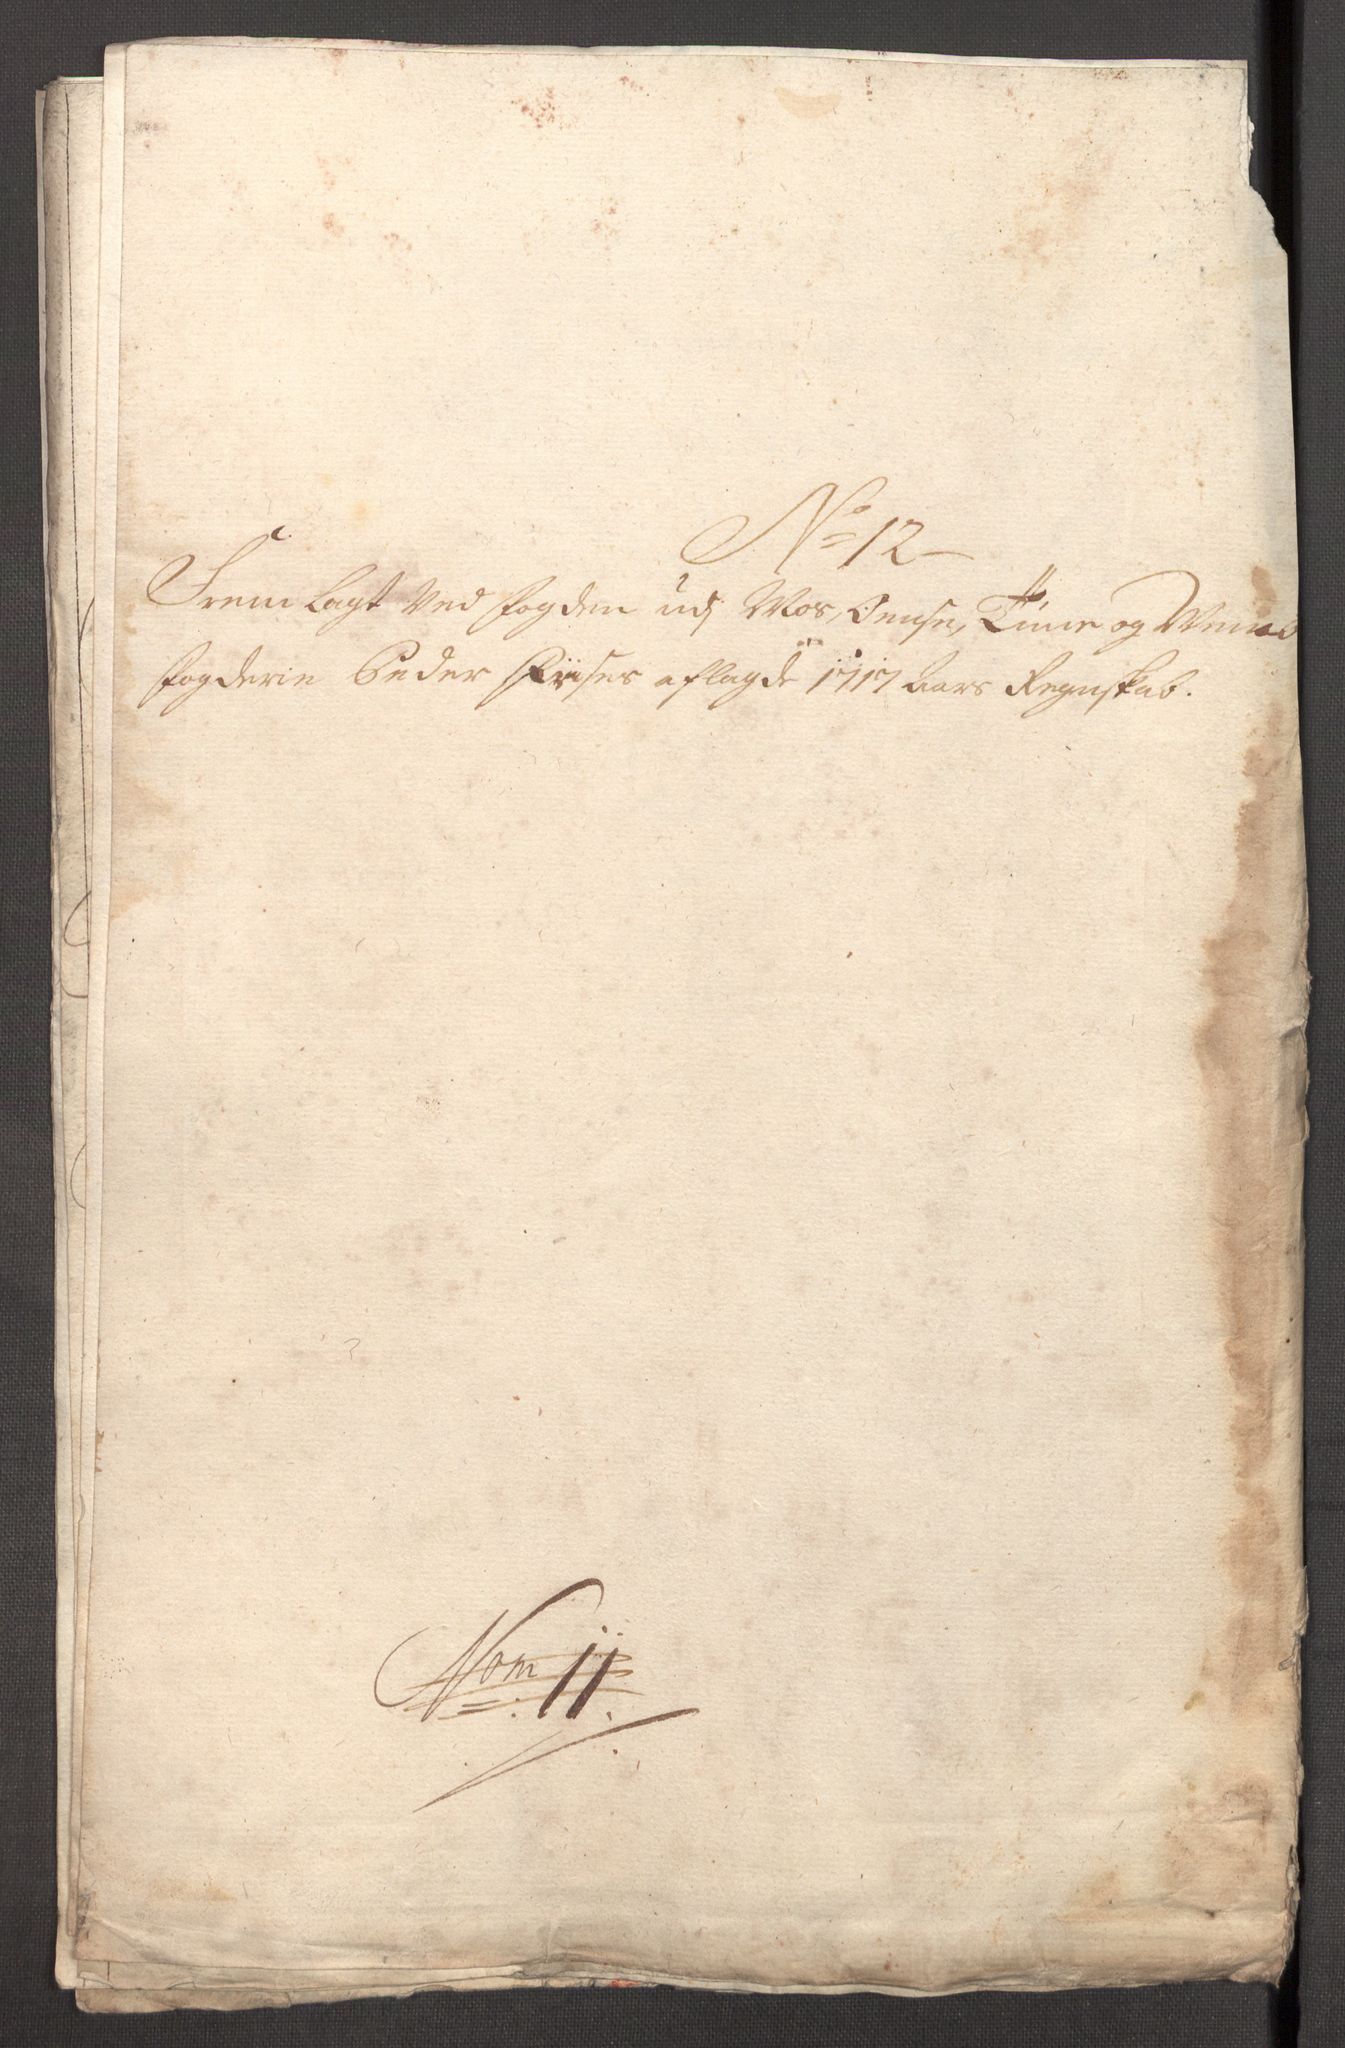 No 12
Frem lagt Ved fogden udj Mos, Onsøe, Tune og Weme
fogderie Peder Friises aflagde 1717 Aars Regnskab.
Nom 11.